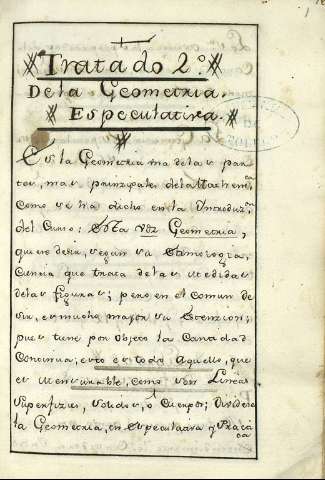 1
Tratado 2º
De la Geometria
Especulativa.
Es la Geometria una de las par
tes, mas prinzipales de la Mathemca
Como se ha dicho en la Introduzon
del Curso: Esta voz Geometria,
quiere desir, segun su Etimologia,
Ciencia que trata de las Medidas
de las figuras; pero en el comun de
sir, es mucho mayor su Extenzion;
pues tiene por objeto la Cantidad
Continua; esto es todo aquello, que
es Mensurable, como son Lineas
Superfizies, solidos, o Cuerpos; Dividese
la Geometria, en Especulativa y Practi
ca